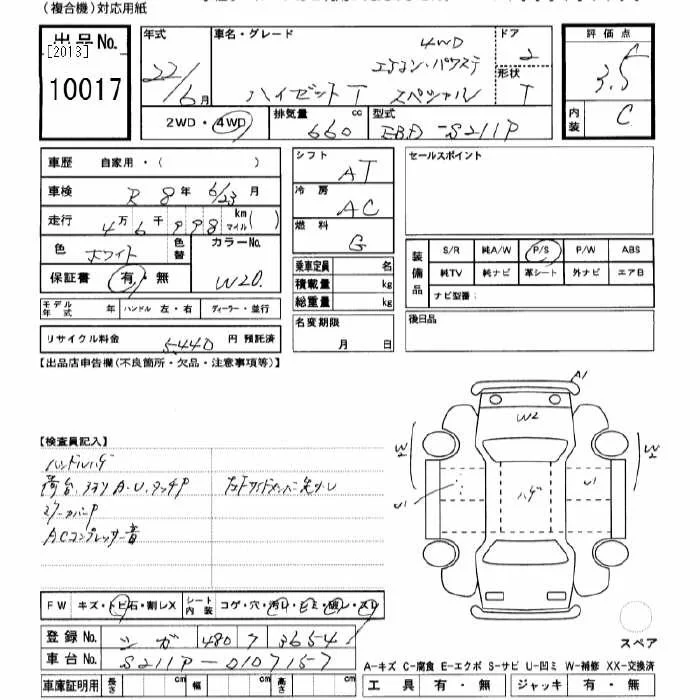 (複合機)対応用紙
出品No.
[2013]
10017
年式
22/6月
車名・グレード
4WD
エアコン・パワステ
ハイゼットT スペシャル
ドア
2
形状
T
評価点
3.5
内装
C
2WD・4WD
排気量 660 cc
型式 EBD-S211P
車歴 自家用・( )
車検 R 8年 6/23月
走行 4万6千998 km マイル( )
色 ホワイト 色替
カラーNo. W20.
保証書 有・無
モデル年式 年 ハンドル 左・右 ディーラー・並行
リサイクル料金 5,440 円 預託済
シフト AT
冷房 AC
燃料 G
乗車定員 名
積載量 kg
総重量 kg
名変期限
月 日
セールスポイント
装備品
S/R 純A/W P/S P/W ABS
純TV 純ナビ 革シート 外ナビ エアB
ナビ型番:
後日品
【出品店申告欄(不良箇所・欠品・注意事項等)】
【検査員記入】
ハンドルハゲ
荷台、アオリA・U、タッチP
ミラーカバーP
ACコンプレッサー音
A1
W2
W2
W2
U1
ハゲ
U1
FW キズ・トビ石・割レX
シート内装 コゲ・穴・汚レ・シミ・破レ・スレ
登録No. シガ 480 ワ 3654
車台No. S211P-0107157
車庫証明用 長さ cm 幅 cm 高さ cm
スペア
A-キズ C-腐食 E-エクボ S-サビ U-凹ミ W-補修 XX-交換済
工具 有・無 ジャッキ 有・無